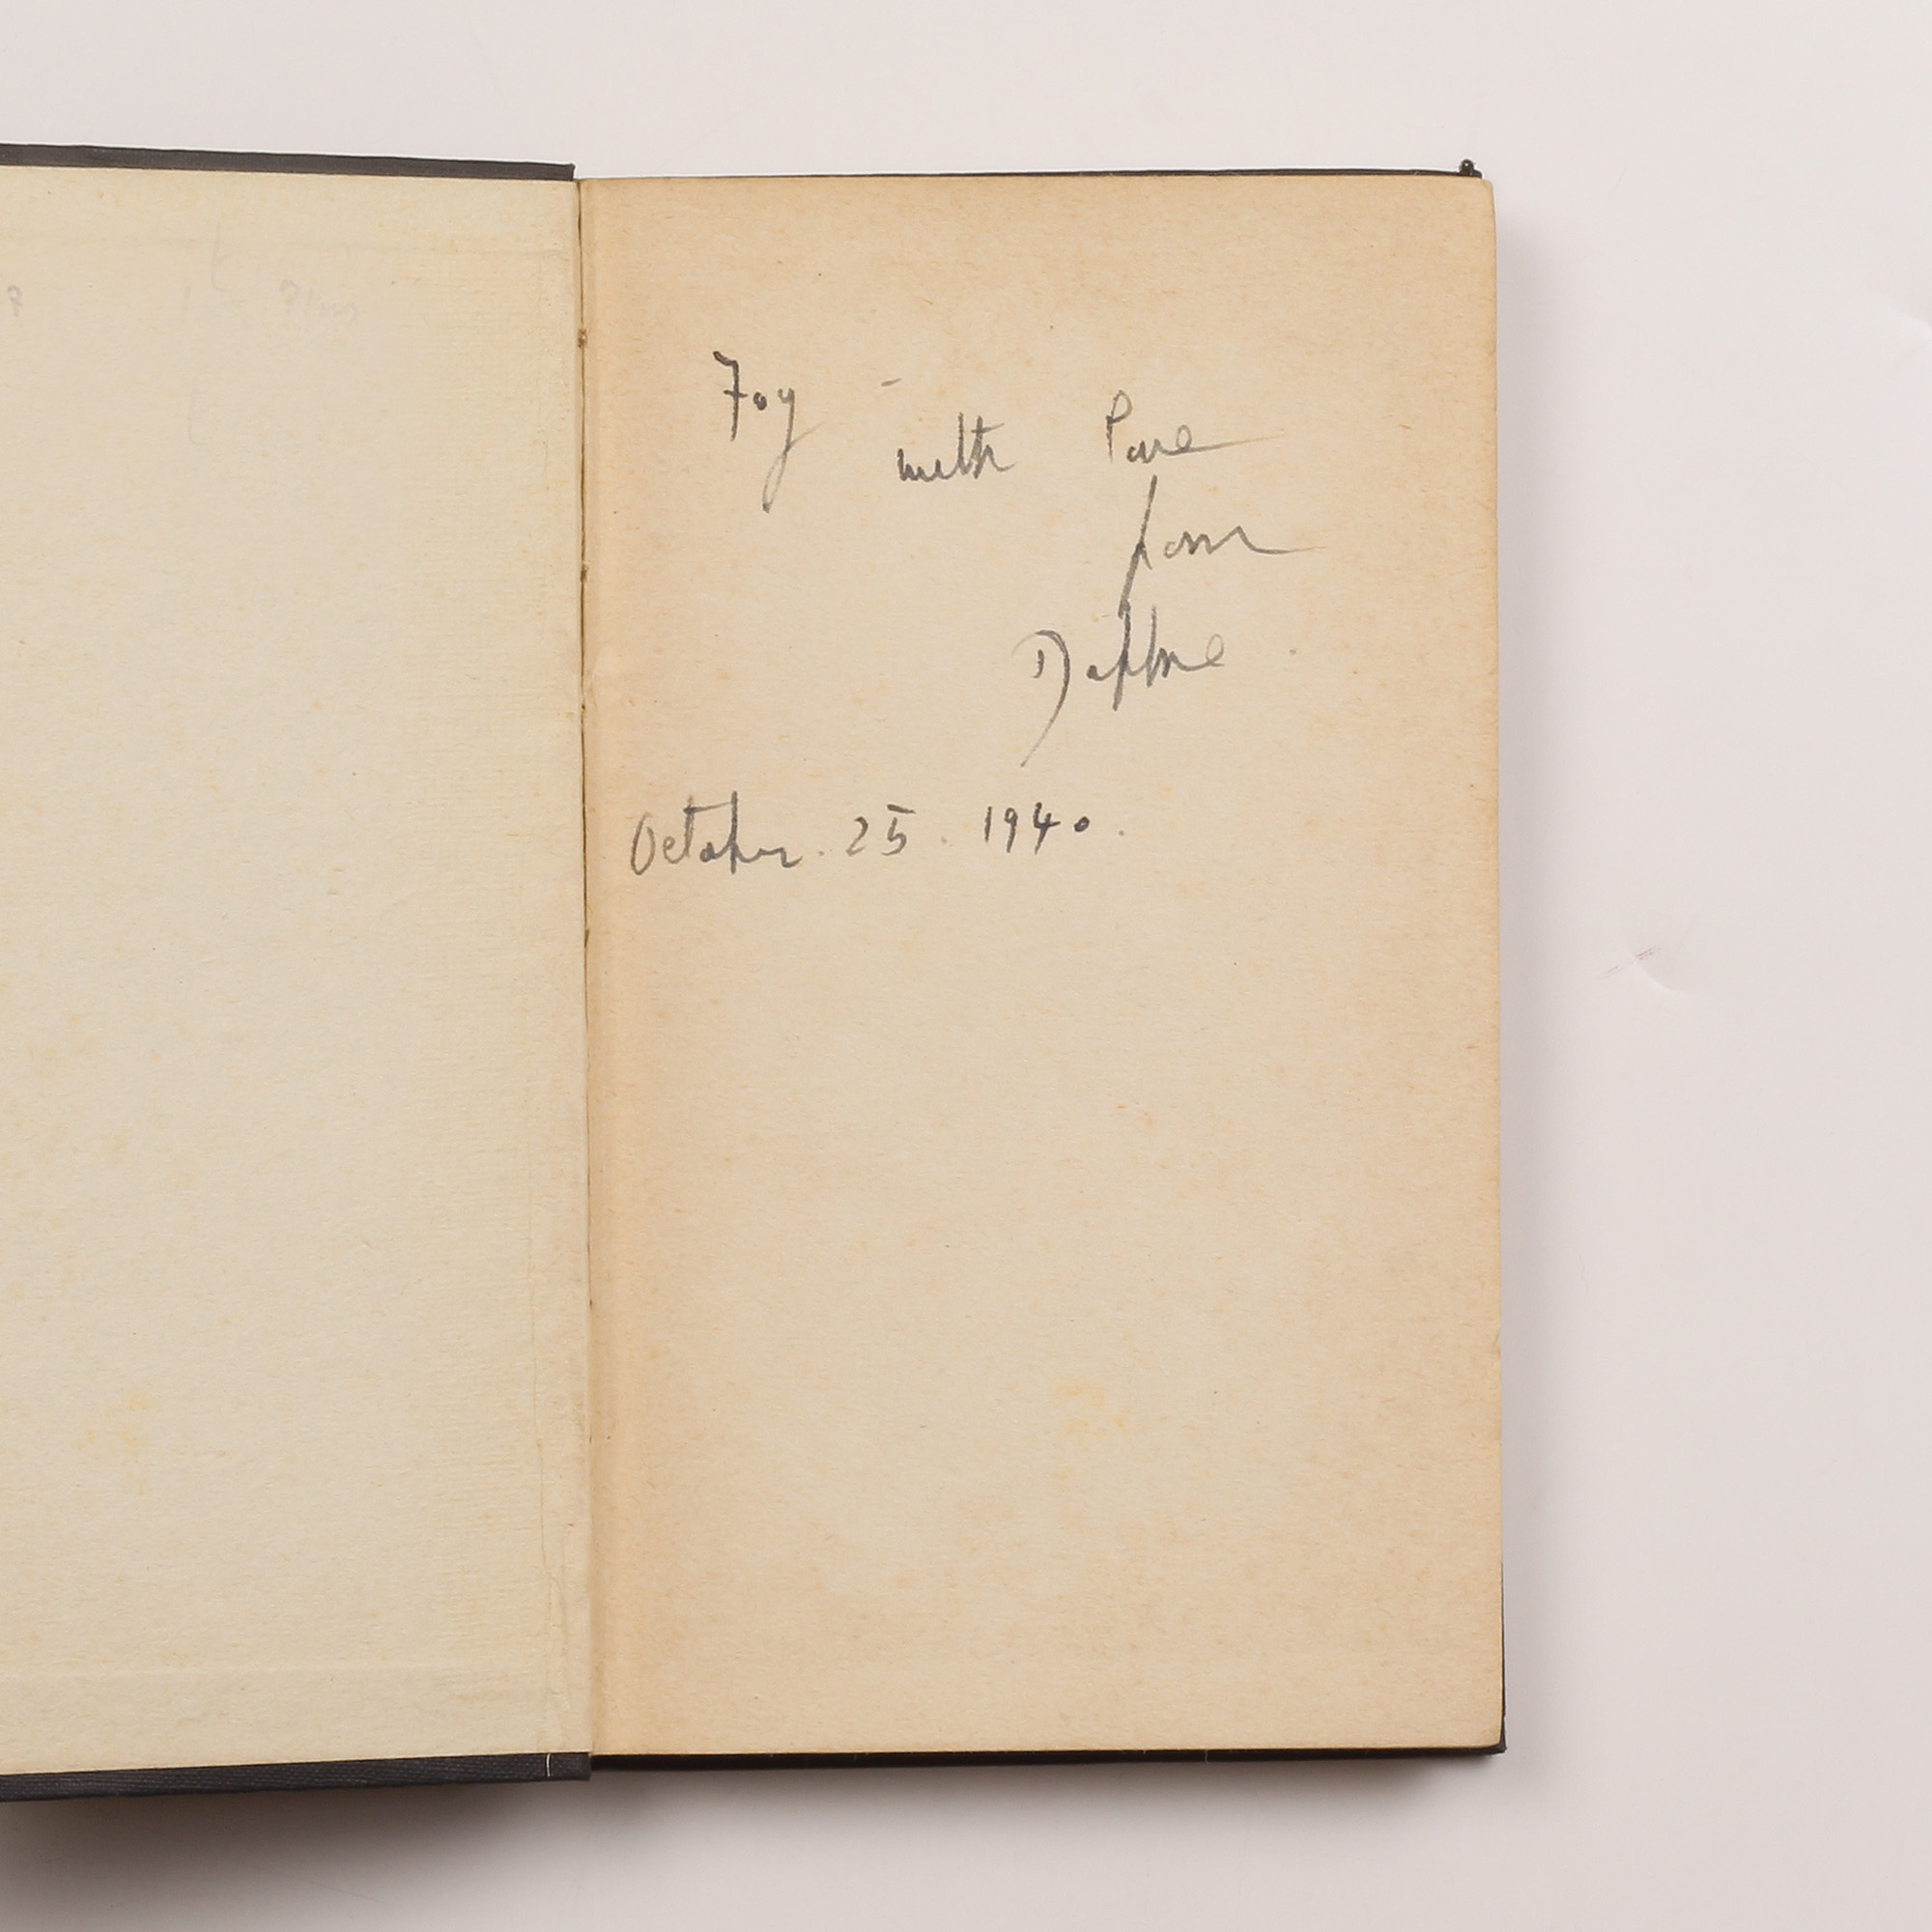 Foy -
with love
from
Daphne
October. 25. 1940.